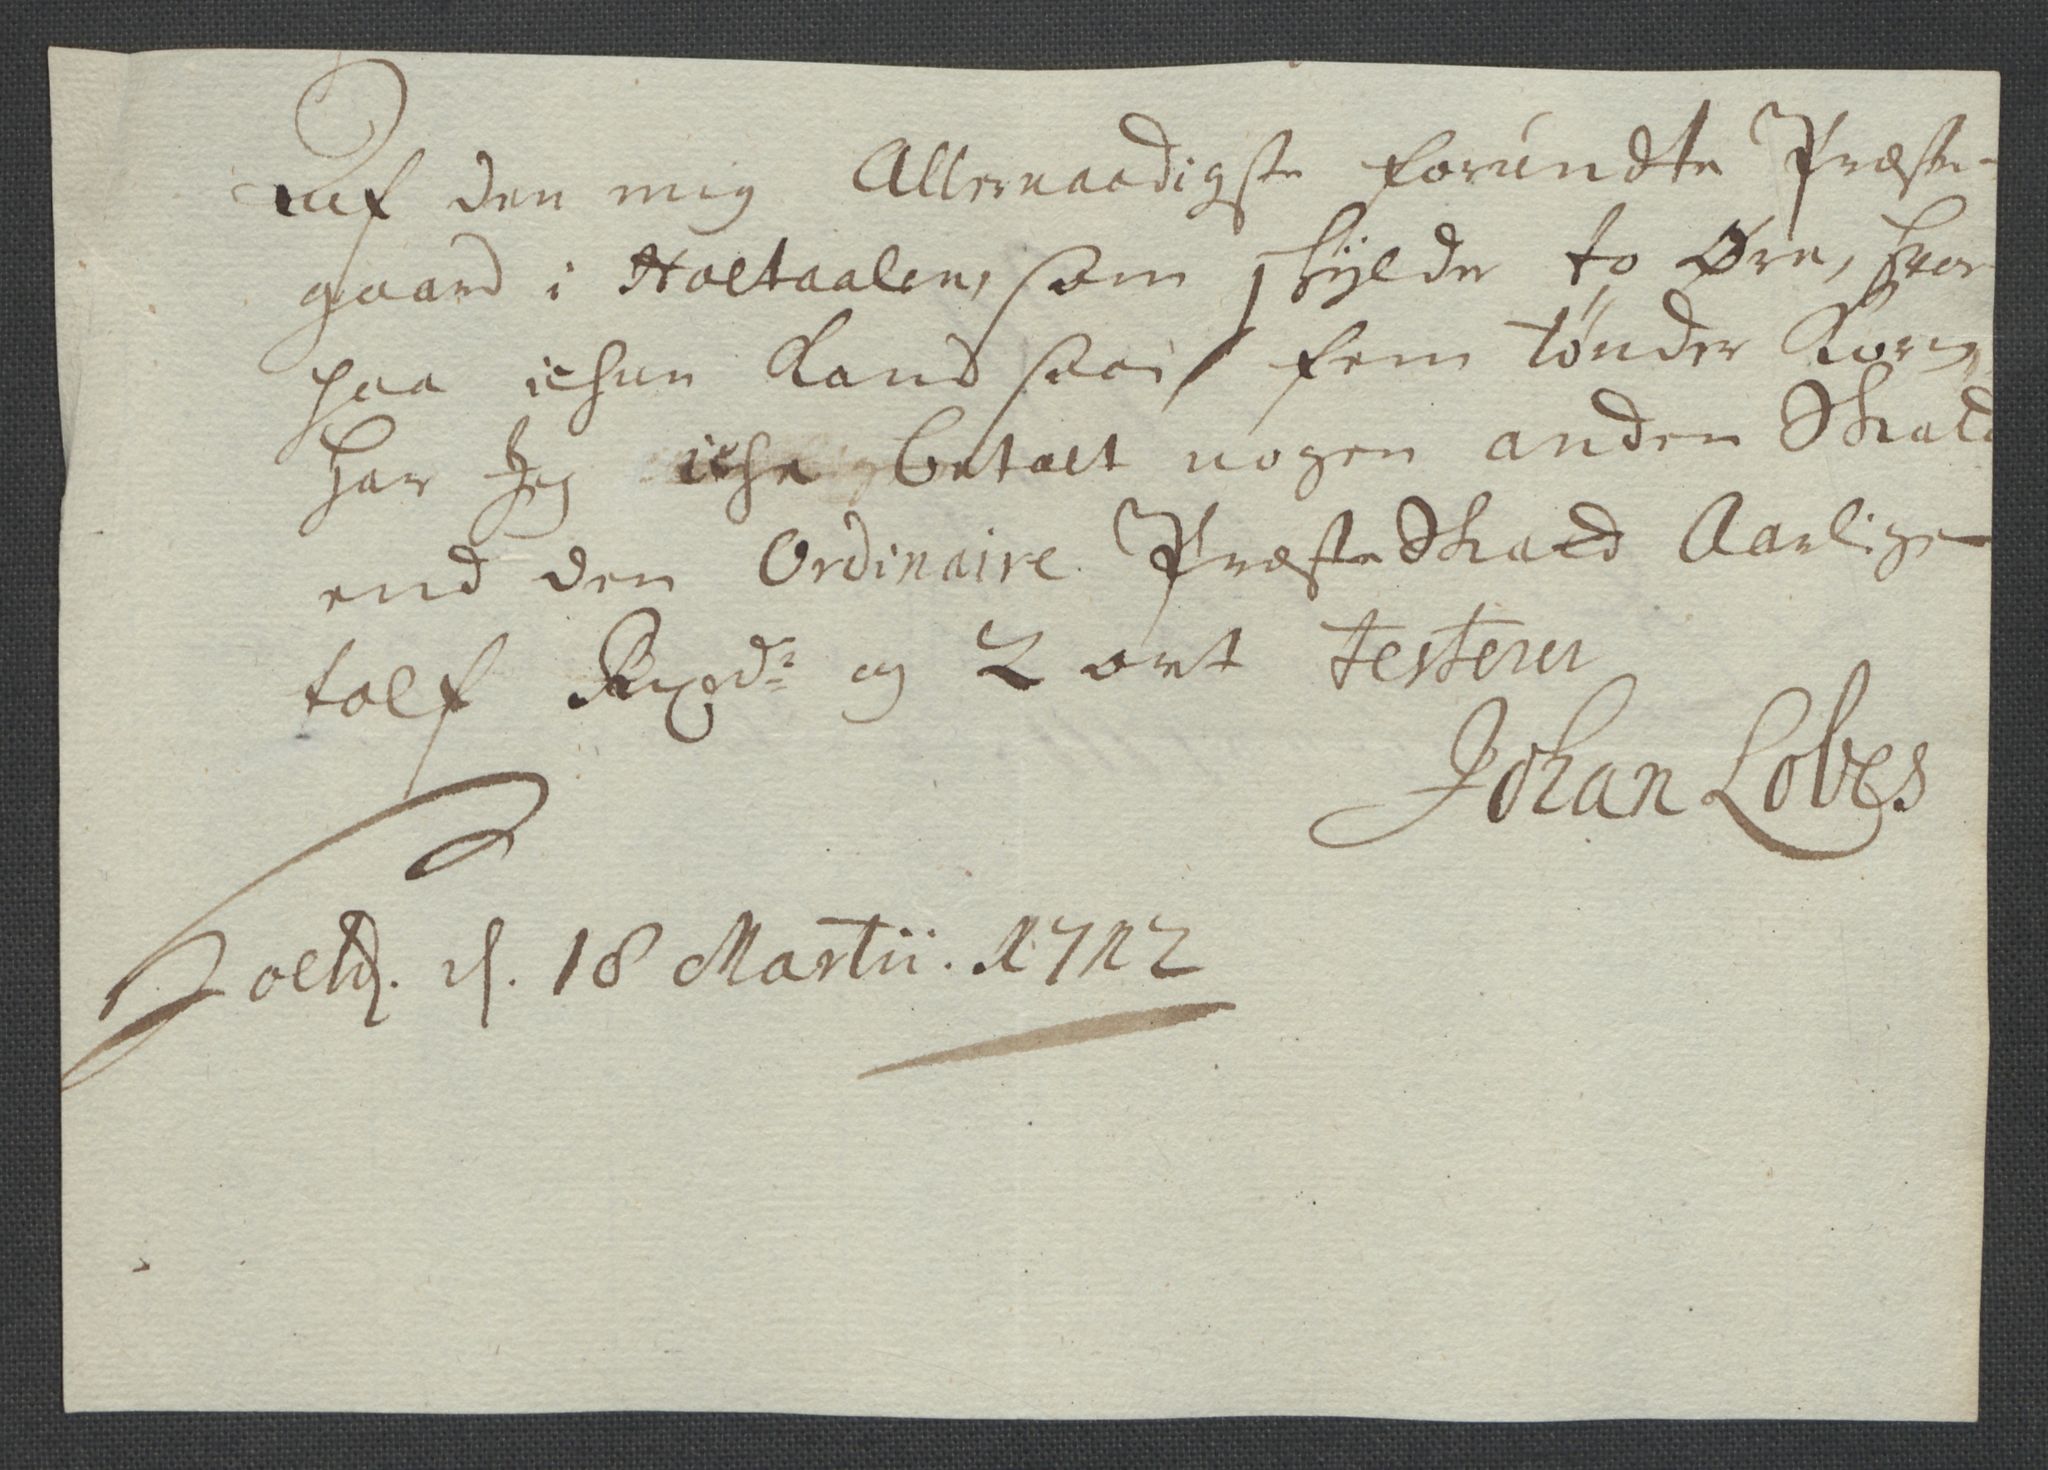 Auf den mig Allernaadigste forundte Præste-
gaard i Holtaalen, som skylder to Øre, hvor
paa ichun kand saaes fem tønder Korn,
har Jeg iche betalt nogen anden Skatt
end den Ordinaire Præste Skatt Aarligen
tolf Rixdr og 2 ort testerer
Johan Lobes
Holtd. d. 18 Martii. 1712